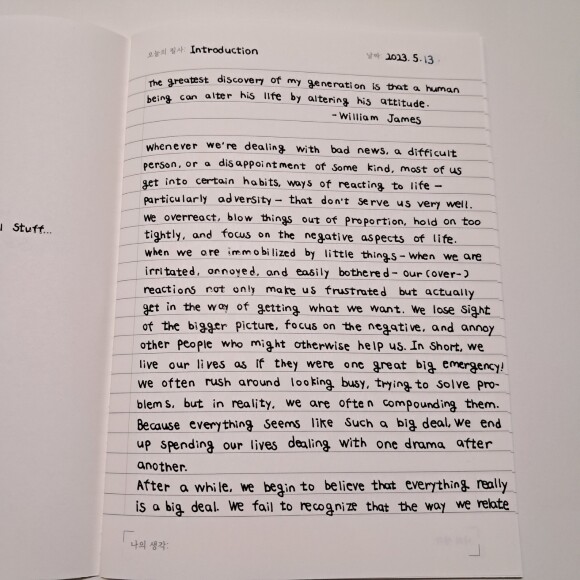 오늘의 필사: Introduction
날짜 2023. 5. 13.
The greatest discovery of my generation is that a human
being can alter his life by altering his attitude.
-William James
Whenever we're dealing with bad news, a difficult
person, or a disappointment of some kind, most of us
get into certain habits, ways of reacting to life –
particularly adversity – that don't serve us very well.
We overreact, blow things out of proportion, hold on too
tightly, and focus on the negative aspects of life.
When we are immobilized by little things – when we are
irritated, annoyed, and easily bothered – our (over-)
reactions not only make us frustrated but actually
get in the way of getting what we want. We lose sight
of the bigger picture, focus on the negative, and annoy
other people who might otherwise help us. In short, we
live our lives as if they were one great big emergency!
We often rush around looking busy, trying to solve pro-
blems, but in reality, we are often compounding them.
Because everything seems like such a big deal, we end
up spending our lives dealing with one drama after
another.
After a while, we begin to believe that everything really
is a big deal. We fail to recognize that the way we relate
나의 생각:
Stuff...